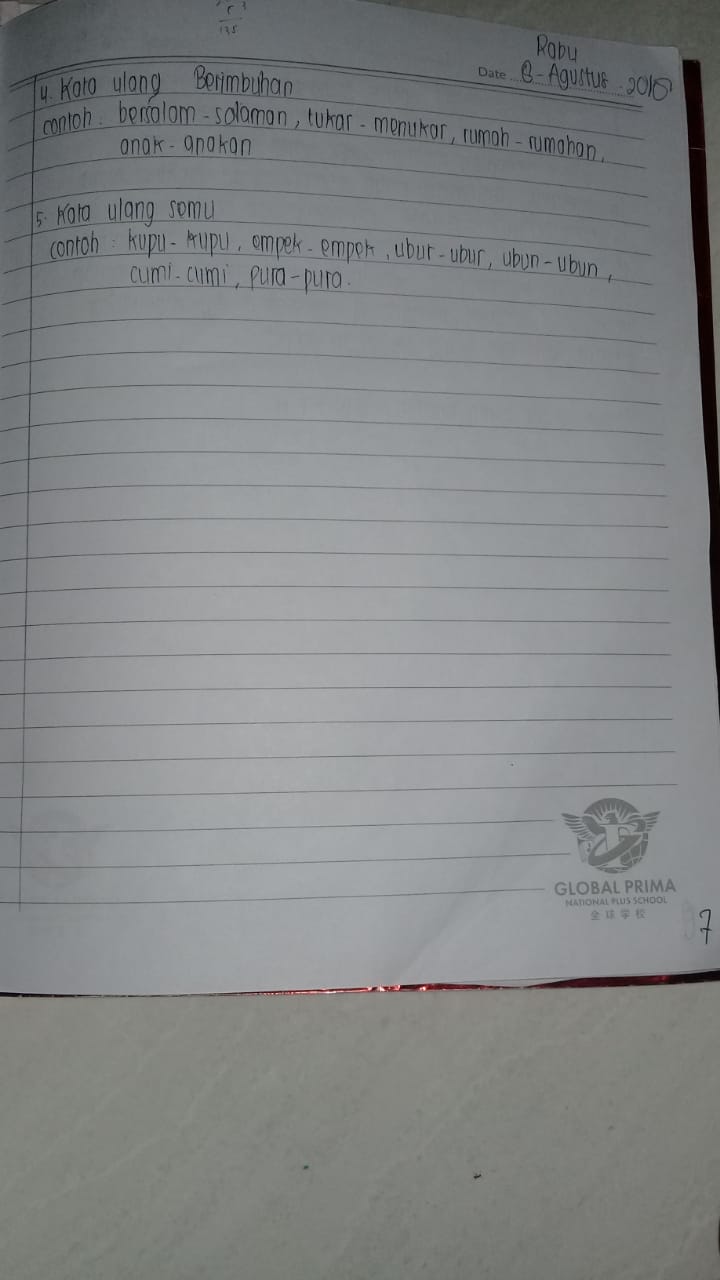 Rabu
Date 8-Agustus-2018
4. Kata ulang Berimbuhan
contoh : bersalam-salaman, tukar-menukar, rumah-rumahan,
anak-anakan
5. Kata ulang semu
contoh : kupu-kupu, empek-empek, ubur-ubur, ubun-ubun,
cumi-cumi, pura-pura.
GLOBAL PRIMA
NATIONAL PLUS SCHOOL
全球学校
7